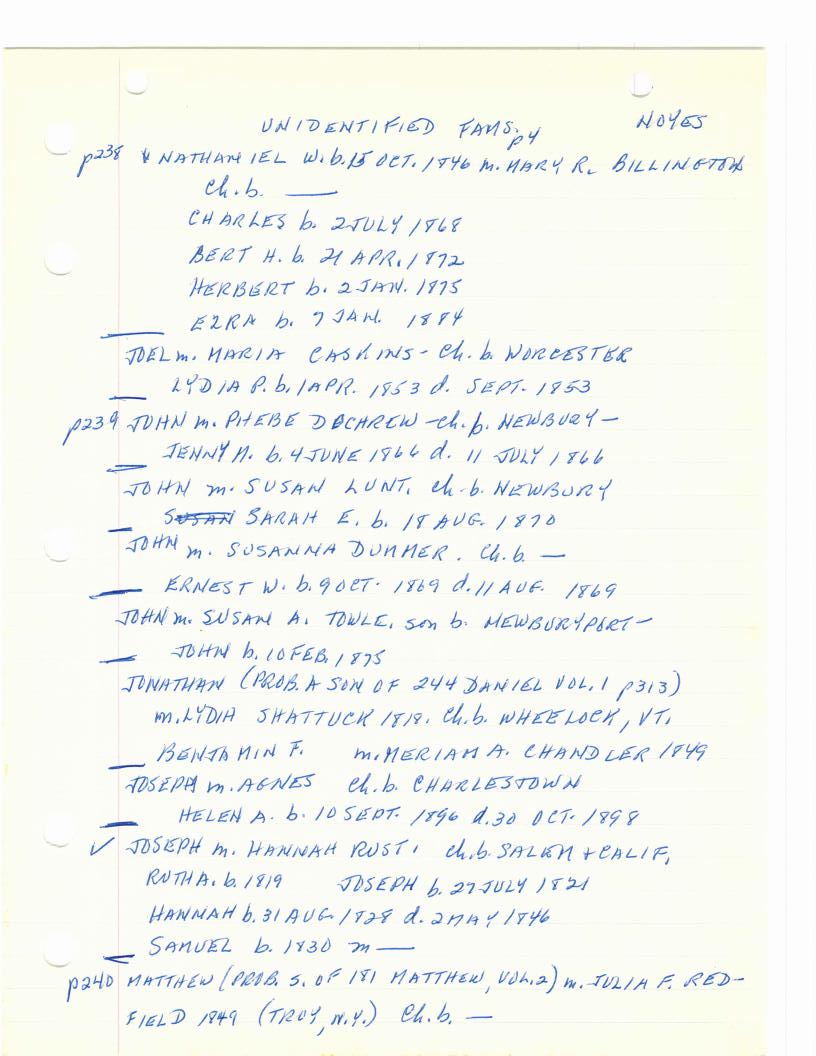 UNIDENTIFIED FAMS. p4 NOYES
p238 NATHANIEL W. b. 15 OCT. 1846 m. MARY R. BILLINGTON
Ch. b. —
CHARLES b. 2 JULY 1868
BERT H. b. 21 APR. 1872
HERBERT b. 2 JAN. 1875
EZRA b. 7 JAN. 1884
JOEL m. MARIA CASKINS - Ch. b. WORCESTER
LYDIA P. b. 1 APR. 1853 d. SEPT. 1853
p239 JOHN m. PHEBE - ch. b. NEWBURY -
JENNY M. b. 4 JUNE 1866 d. 11 JULY 1866
JOHN m. SUSAN LUNT. Ch. b. NEWBURY
SARAH E. b. 18 AUG. 1870
JOHN m. SUSANNA DUMMER. Ch. b. —
ERNEST W. b. 9 OCT. 1869 d. 11 AUG. 1869
JOHN m. SUSAN A. TOWLE. son b. NEWBURYPORT -
JOHN b. 10 FEB. 1875
JONATHAN (PROB. A SON OF 244 DANIEL VOL. 1 p313)
m. LYDIA SHATTUCK 1818. Ch. b. WHEELOCK, VT.
BENJAMIN F. m. MERIAM A. CHANDLER 1849
JOSEPH m. AGNES Ch. b. CHARLESTOWN
HELEN A. b. 10 SEPT. 1896 d. 30 OCT. 1898
✓ JOSEPH m. HANNAH RUST. Ch. b. SALEM + CALIF.
RUTH A. b. 1819 JOSEPH b. 27 JULY 1821
HANNAH b. 31 AUG. 1828 d. 2 MAY 1846
SAMUEL b. 1830 m —
p240 MATTHEW (PROB. S. OF 181 MATTHEW, VOL. 2) m. JULIA F. RED-
FIELD 1849 (TROY, N.Y.) Ch. b. —